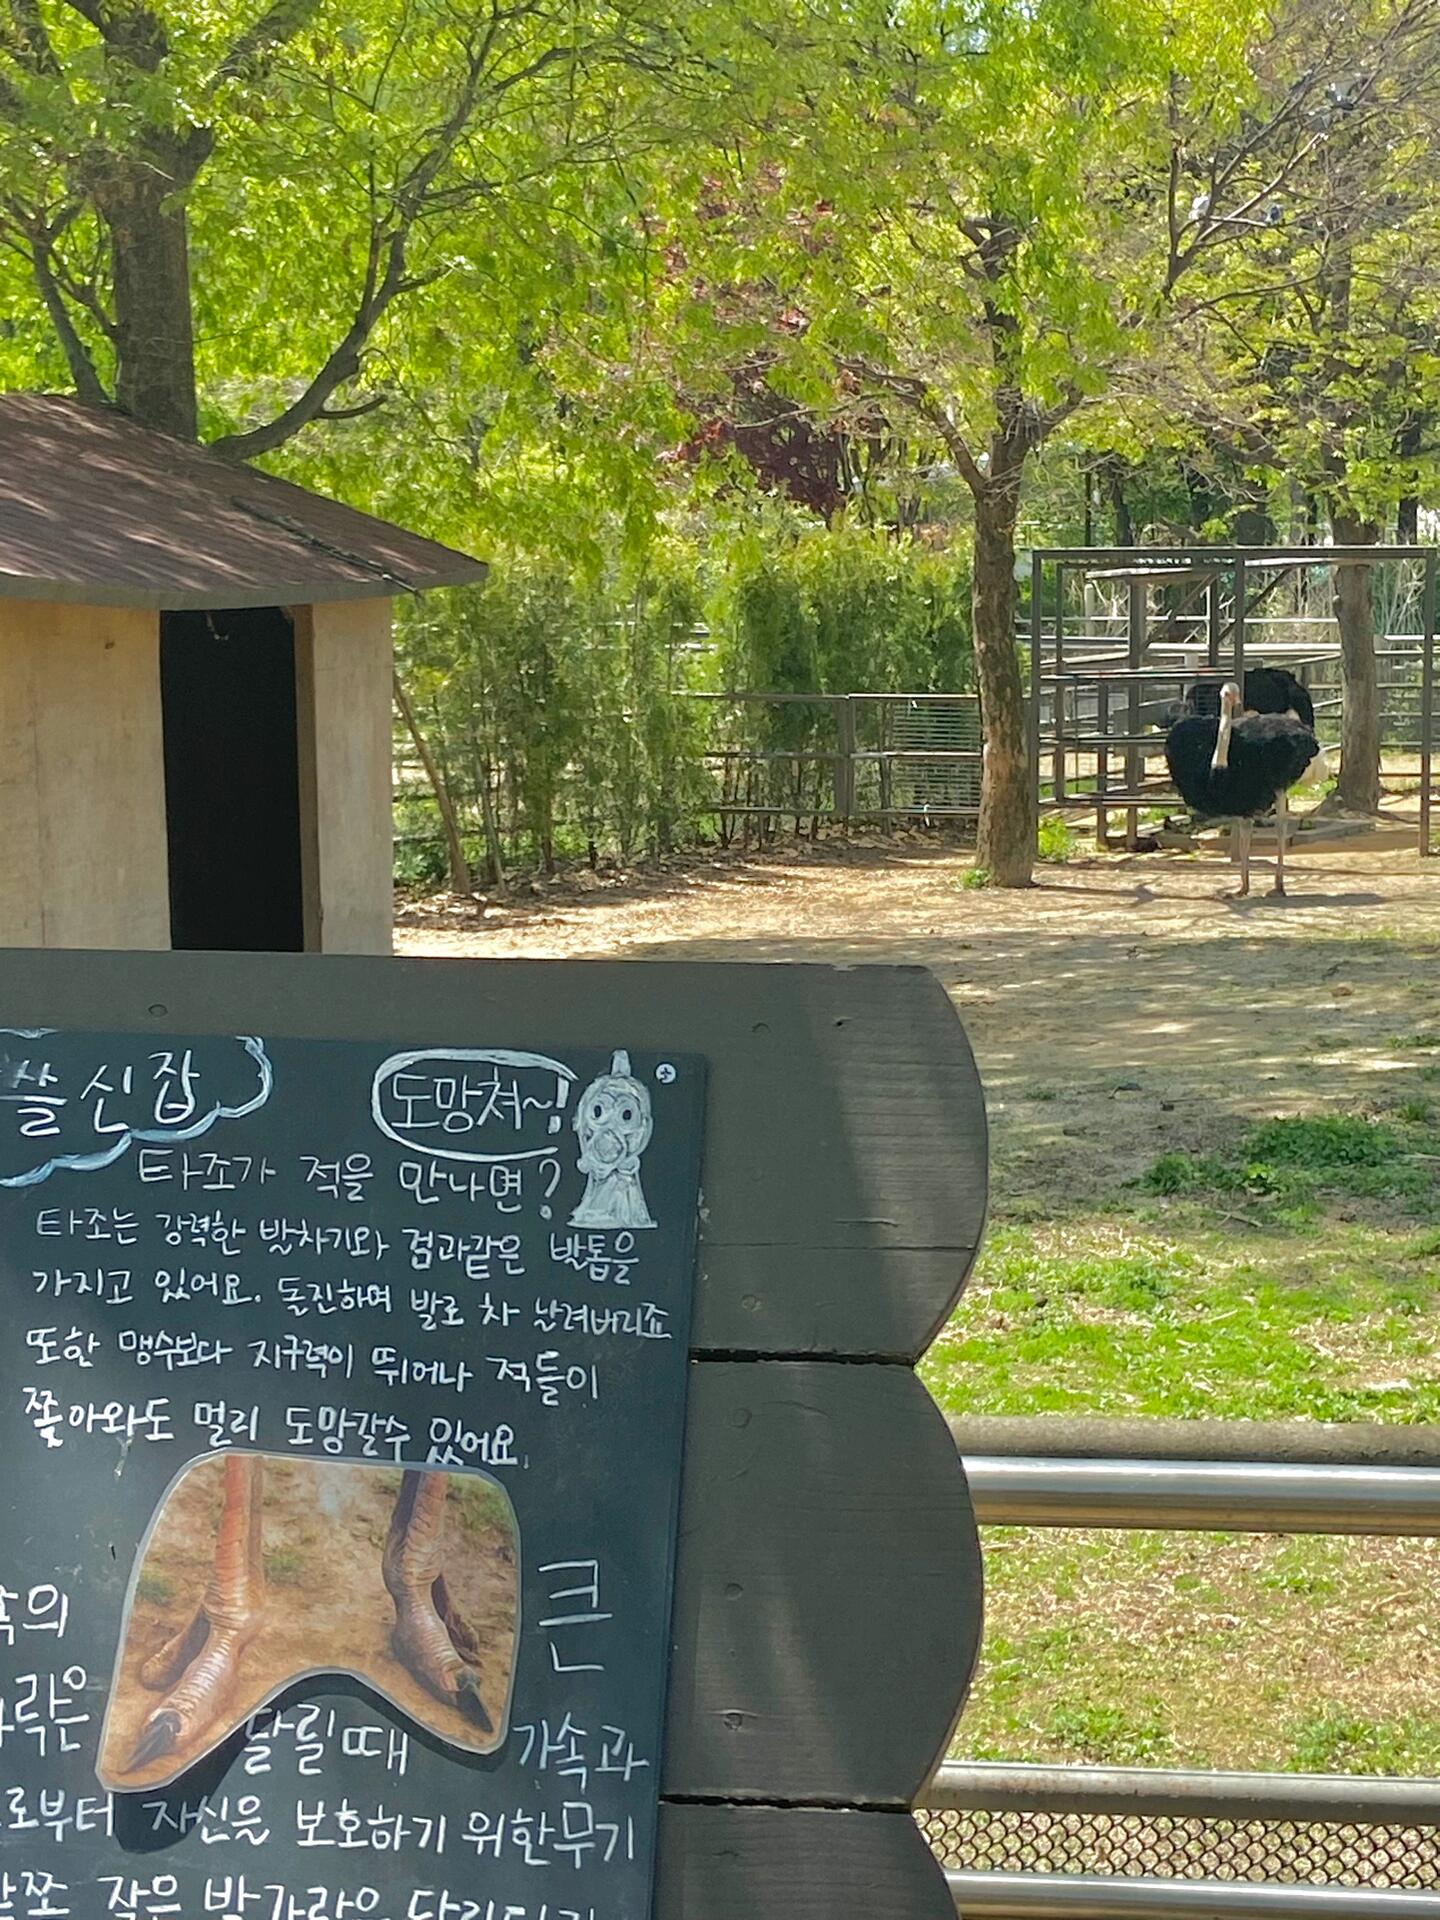 쓸신잡
도망쳐~!
타조가 적을 만나면?
타조는 강력한 발차기와 검과같은 발톱을
가지고 있어요. 돌진하며 발로 차 날려버리죠
또한 맹수보다 지구력이 뛰어나 적들이
쫓아와도 멀리 도망갈수 있어요.
의 큰
락은 달릴때 가속과
로부터 자신을 보호하기 위한무기
쪽 작은 발가락은